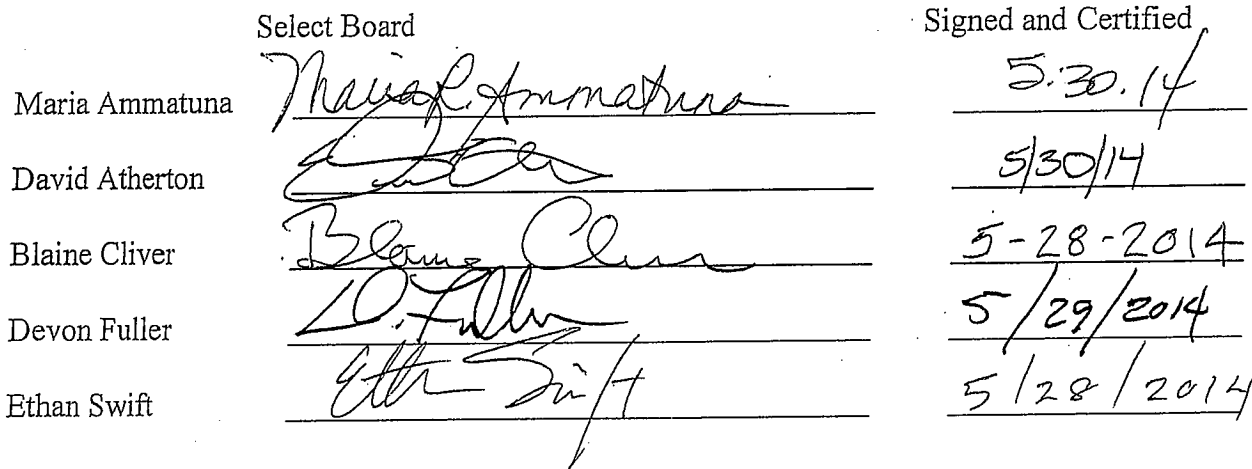 Select Board Signed and Certified
Maria Ammatuna Maria R. Ammatuna 5.30.14
David Atherton 5/30/14
Blaine Cliver Blaine Cliver 5-28-2014
Devon Fuller D. Fuller 5/29/2014
Ethan Swift Ethan Swift 5/28/2014